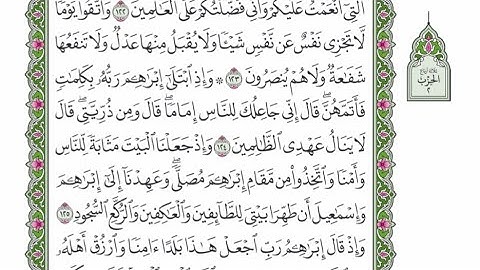 ٱلَّتِىٓ أَنۡعَمۡتُ عَلَيۡكُمۡ وَأَنِّى فَضَّلۡتُكُمۡ عَلَى ٱلۡعَٰلَمِينَ ١٢٢ وَٱتَّقُواْ يَوۡمٗا
لَّا تَجۡزِى نَفۡسٌ عَن نَّفۡسٖ شَيۡـٔٗا وَلَا يُقۡبَلُ مِنۡهَا عَدۡلٞ وَلَا تَنفَعُهَا
شَفَٰعَةٞ وَلَا هُمۡ يُنصَرُونَ ١٢٣ ۞ وَإِذِ ٱبۡتَلَىٰٓ إِبۡرَٰهِـۧمَ رَبُّهُۥ بِكَلِمَٰتٖ
فَأَتَمَّهُنَّۖ قَالَ إِنِّى جَاعِلُكَ لِلنَّاسِ إِمَامٗاۖ قَالَ وَمِن ذُرِّيَّتِىۖ قَالَ
لَا يَنَالُ عَهۡدِى ٱلظَّٰلِمِينَ ١٢٤ وَإِذۡ جَعَلۡنَا ٱلۡبَيۡتَ مَثَابَةٗ لِّلنَّاسِ
وَأَمۡنٗا وَٱتَّخِذُواْ مِن مَّقَامِ إِبۡرَٰهِـۧمَ مُصَلّٗىۖ وَعَهِدۡنَآ إِلَىٰٓ إِبۡرَٰهِـۧمَ
وَإِسۡمَٰعِيلَ أَن طَهِّرَا بَيۡتِىَ لِلطَّآئِفِينَ وَٱلۡعَٰكِفِينَ وَٱلرُّكَّعِ ٱلسُّجُودِ ١٢٥
وَإِذۡ قَالَ إِبۡرَٰهِـۧمُ رَبِّ ٱجۡعَلۡ هَٰذَا بَلَدًا ءَامِنٗا وَٱرۡزُقۡ أَهۡلَهُۥ